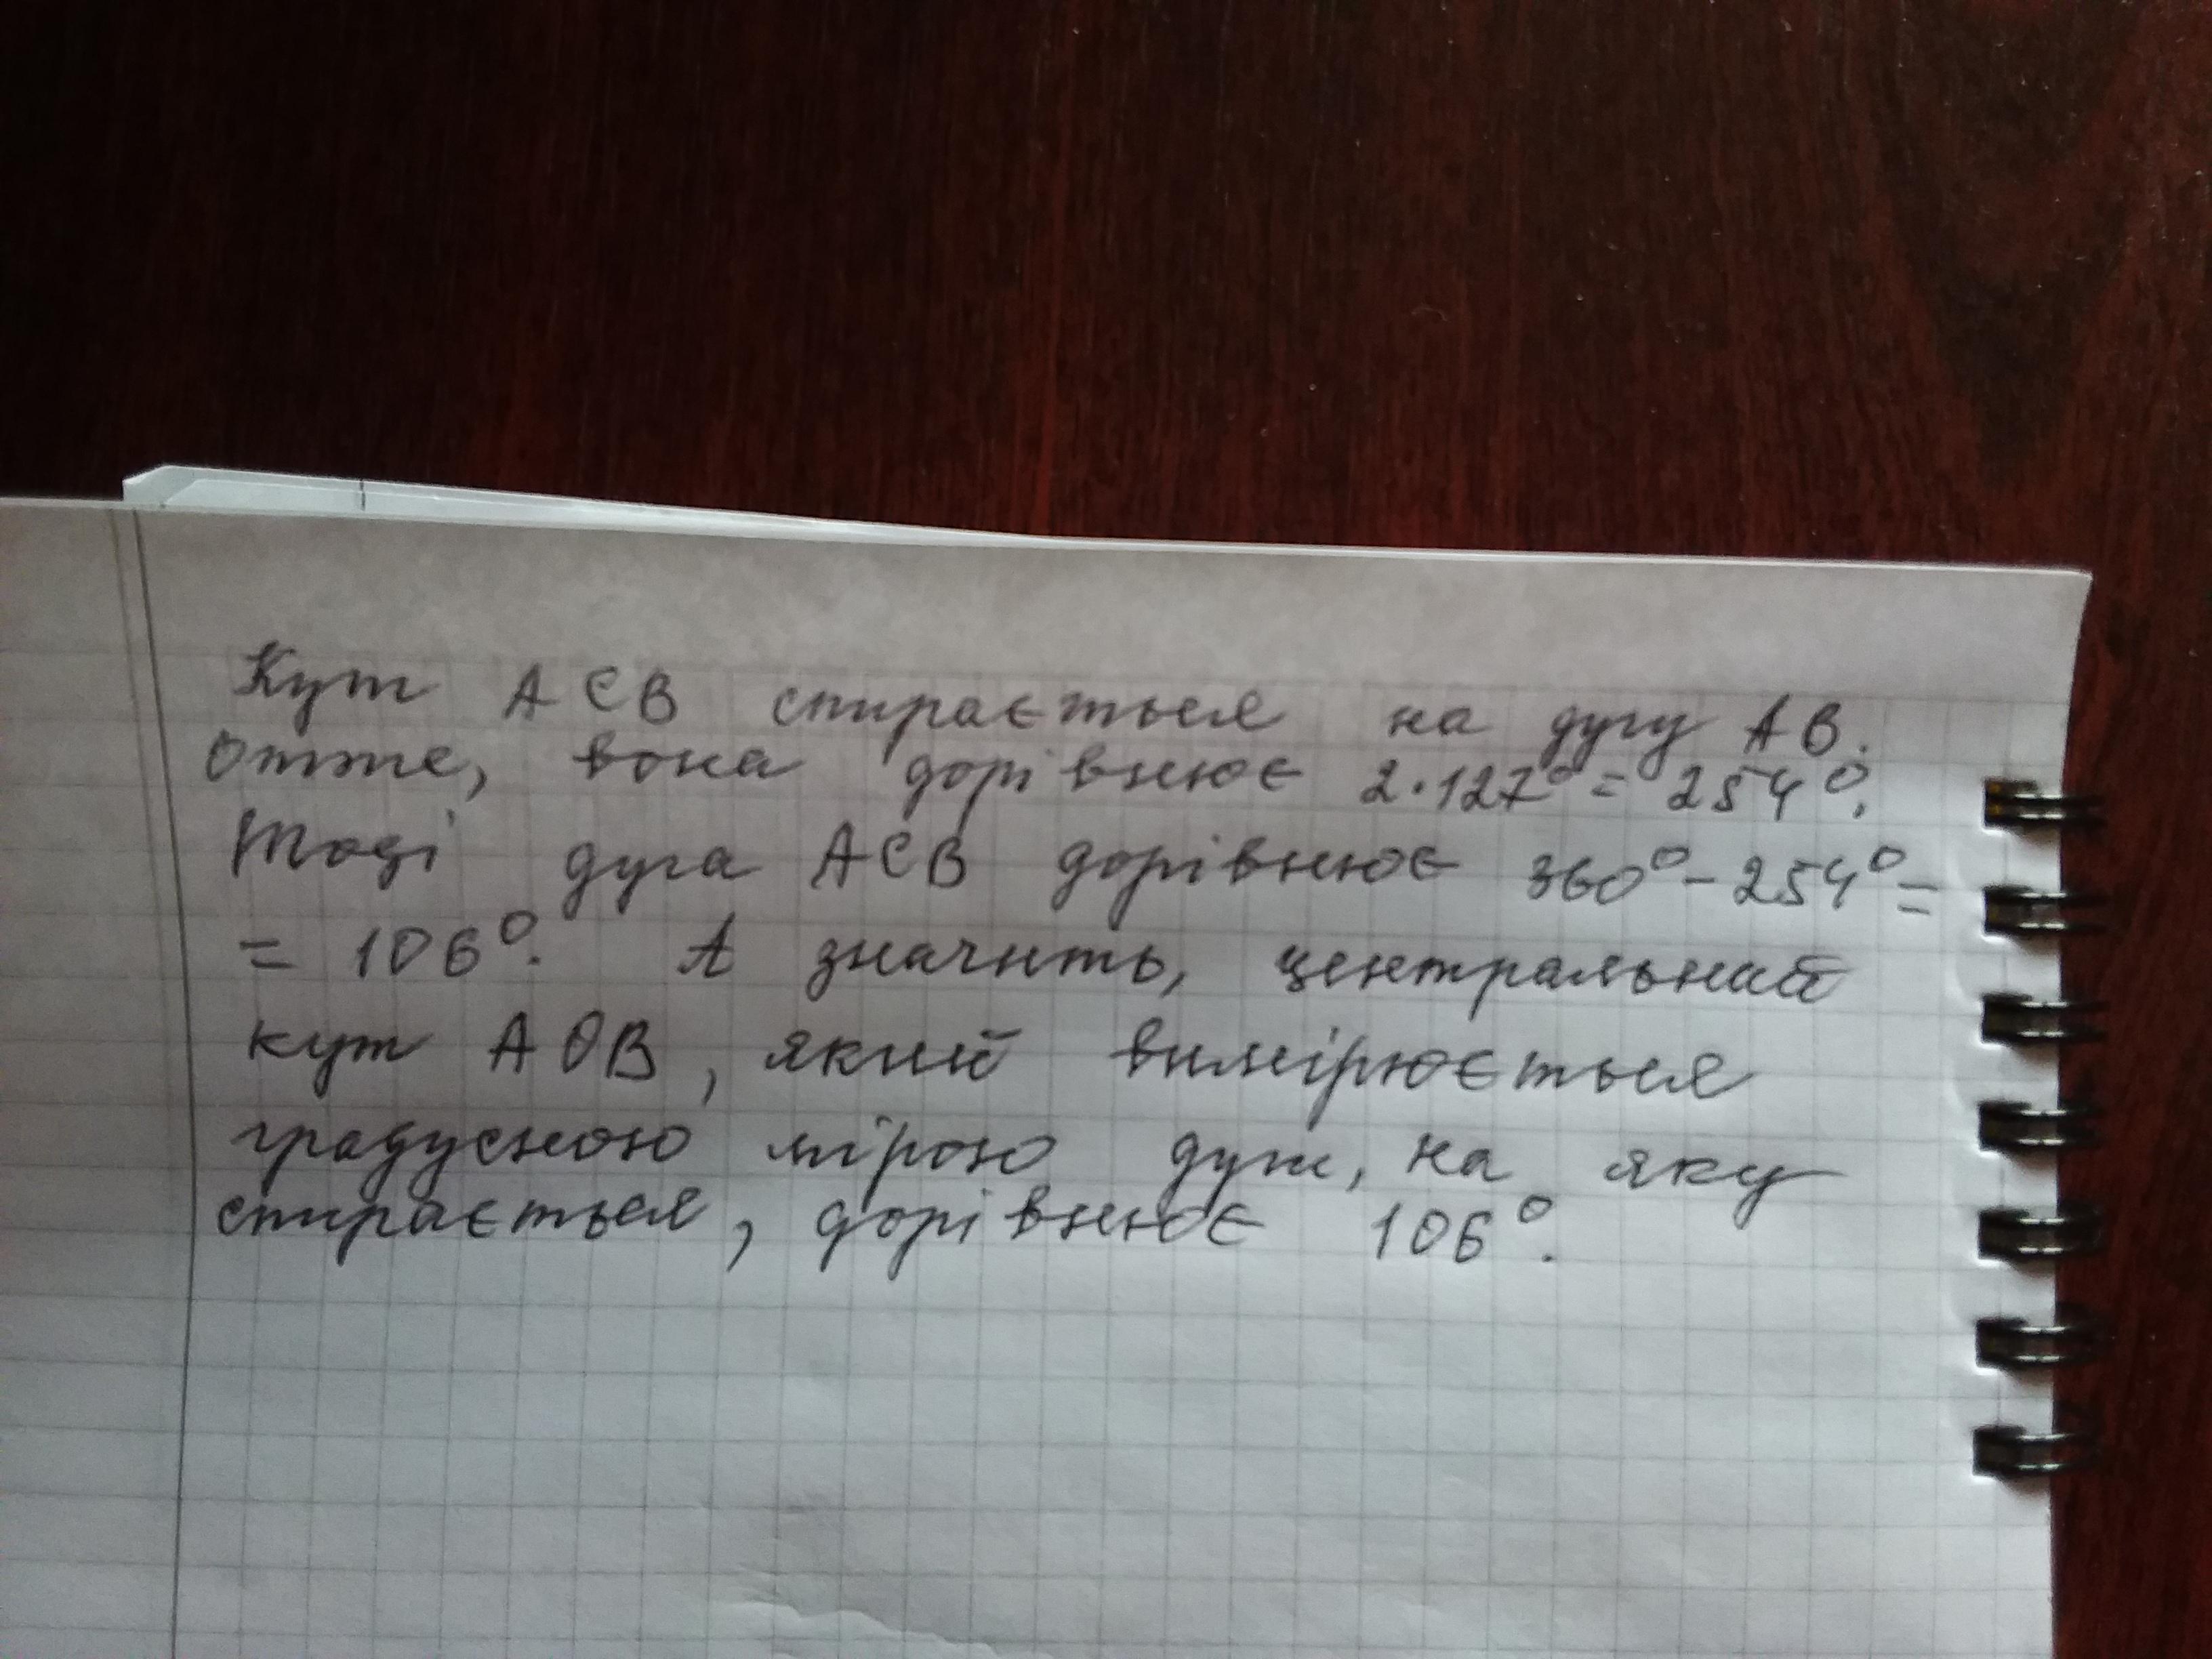 Кут АСВ спирається на дугу АВ.
Отже, вона дорівнює 2·127° = 254°.
Тоді дуга АСВ дорівнює 360° – 254° =
= 106°. А значить, центральний
кут АОВ, який вимірюється
градусною мірою дуги, на яку
спирається, дорівнює 106°.